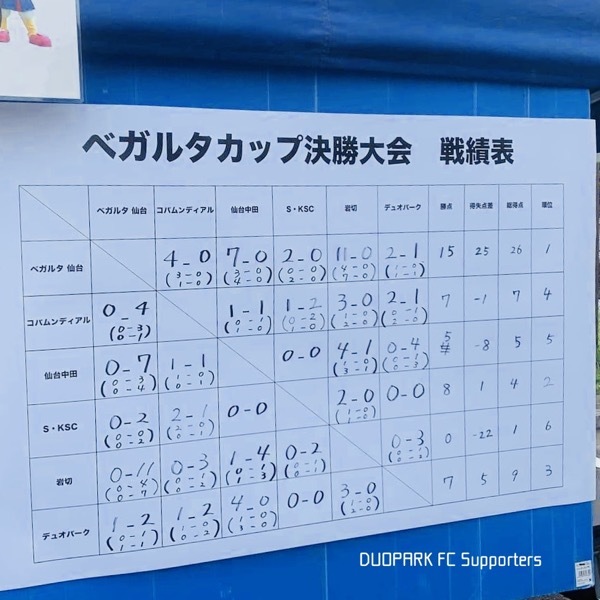 ベガルタカップ決勝大会 戦績表
ベガルタ 仙台 コバムンディアル 仙台中田 S・KSC 岩切 デュオパーク 勝点 得失点差 総得点 順位
ベガルタ 仙台 4-0 7-0 2-0 11-0 2-1 15 25 26 1
(3-0 (3-0 (0-0 (4-0 (1-0
1-0) 4-0) 2-0) 7-0) 1-1)
コバムンディアル 0-4 1-1 1-2 3-0 2-1 7 -1 7 4
(0-3 (0-1 (0-2 (1-0 (0-1
0-1) 1-0) 1-0) 2-0) 2-0)
仙台中田 0-7 1-1 0-0 4-1 0-4 5 -8 5 5
(0-3 (1-0 (1-0 (0-1
0-4) 0-1) 3-1) 0-3)
S・KSC 0-2 2-1 0-0 2-0 0-0 8 1 4 2
(0-0 (2-0 (1-0
0-2) 0-1) 1-0)
岩切 0-11 0-3 1-4 0-2 0-3 0 -22 1 6
(0-4 (0-1 (0-1 (0-1 (0-1
0-7) 0-2) 1-3) 0-1) 0-2)
デュオパーク 1-2 1-2 4-0 0-0 3-0 7 5 9 3
(0-1 (1-0 (1-0 (1-0
1-1) 0-2) 3-0) 2-0)
DUOPARK FC Supporters